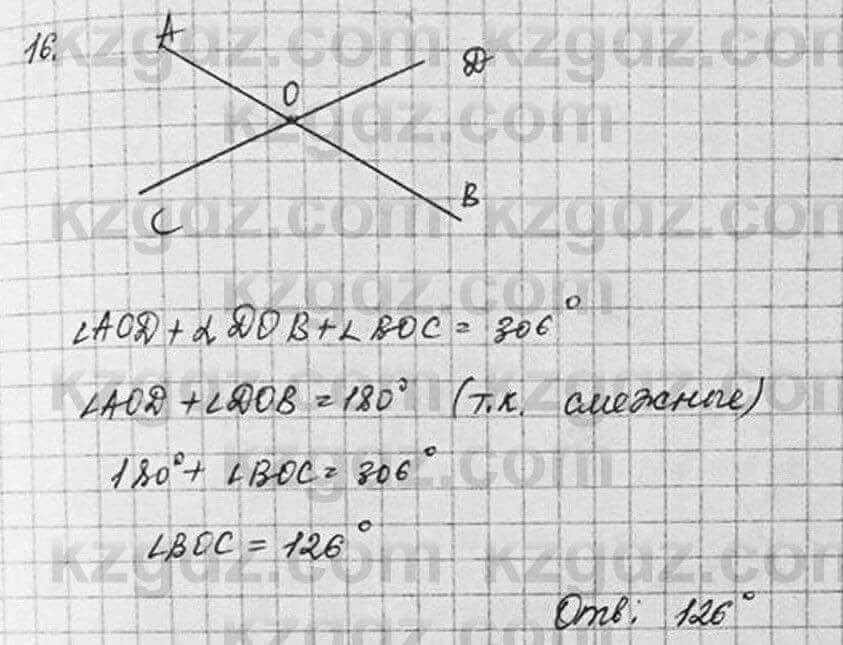 16.
A
D
O
B
C
∠AOD + ∠DOB + ∠BOC = 306°
∠AOD + ∠DOB = 180° (т.к. смежные)
180° + ∠BOC = 306°
∠BOC = 126°
Отв: 126°
kzgdz.com kzgdz.com
kzgdz.com
kzgdz.com kzgdz.com
kzgdz.com
kzgdz.com kzgdz.com
kzgdz.com
kzgdz.com kzgdz.com
kzgdz.com